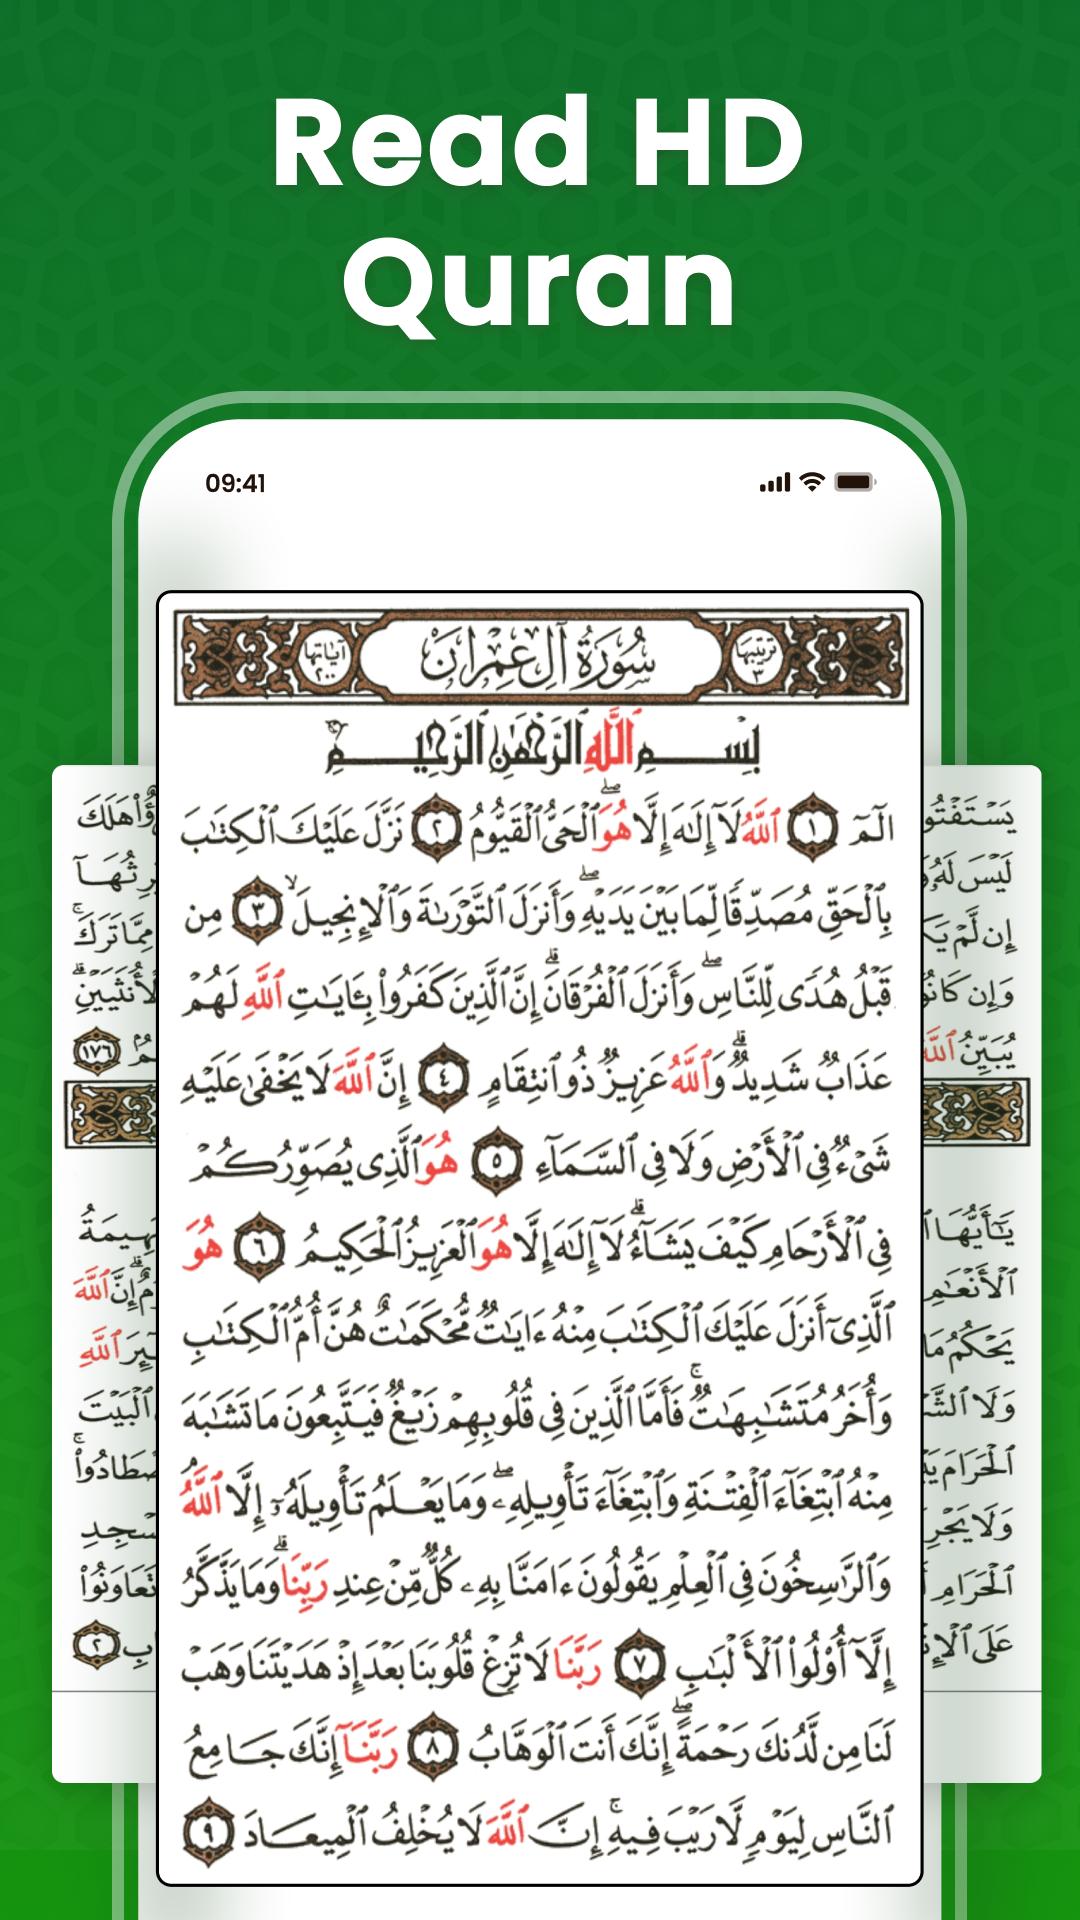 Read HD
Quran
09:41
سُورَةُ آلِ عِمْرَانَ
ترتيبها ٣
آياتها ٢٠٠
بِسْمِ ٱللَّهِ ٱلرَّحْمَٰنِ ٱلرَّحِيمِ
الٓمٓ ١ ٱللَّهُ لَآ إِلَٰهَ إِلَّا هُوَ ۖ ٱلْحَىُّ ٱلْقَيُّومُ ٢ نَزَّلَ عَلَيْكَ ٱلْكِتَٰبَ
بِٱلْحَقِّ مُصَدِّقًا لِّمَا بَيْنَ يَدَيْهِ ۖ وَأَنزَلَ ٱلتَّوْرَىٰةَ وَٱلْإِنجِيلَ ۙ ٣ مِن
قَبْلُ هُدًى لِّلنَّاسِ ۖ وَأَنزَلَ ٱلْفُرْقَانَ ۗ إِنَّ ٱلَّذِينَ كَفَرُوا۟ بِـَٔايَٰتِ ٱللَّهِ لَهُمْ
عَذَابٌ شَدِيدٌ ۗ وَٱللَّهُ عَزِيزٌ ذُو ٱنتِقَامٍ ٤ إِنَّ ٱللَّهَ لَا يَخْفَىٰ عَلَيْهِ
شَىْءٌ فِى ٱلْأَرْضِ وَلَا فِى ٱلسَّمَآءِ ٥ هُوَ ٱلَّذِى يُصَوِّرُكُمْ
فِى ٱلْأَرْحَامِ كَيْفَ يَشَآءُ ۗ لَآ إِلَٰهَ إِلَّا هُوَ ٱلْعَزِيزُ ٱلْحَكِيمُ ٦ هُوَ
ٱلَّذِىٓ أَنزَلَ عَلَيْكَ ٱلْكِتَٰبَ مِنْهُ ءَايَٰتٌ مُّحْكَمَٰتٌ هُنَّ أُمُّ ٱلْكِتَٰبِ
وَأُخَرُ مُتَشَٰبِهَٰتٌ ۖ فَأَمَّا ٱلَّذِينَ فِى قُلُوبِهِمْ زَيْغٌ فَيَتَّبِعُونَ مَا تَشَٰبَهَ
مِنْهُ ٱبْتِغَآءَ ٱلْفِتْنَةِ وَٱبْتِغَآءَ تَأْوِيلِهِۦ ۖ وَمَا يَعْلَمُ تَأْوِيلَهُۥٓ إِلَّا ٱللَّهُ
وَٱلرَّٰسِخُونَ فِى ٱلْعِلْمِ يَقُولُونَ ءَامَنَّا بِهِۦ كُلٌّ مِّنْ عِندِ رَبِّنَا ۗ وَمَا يَذَّكَّرُ
إِلَّآ أُو۟لُوا۟ ٱلْأَلْبَٰبِ ٧ رَبَّنَا لَا تُزِغْ قُلُوبَنَا بَعْدَ إِذْ هَدَيْتَنَا وَهَبْ
لَنَا مِن لَّدُنكَ رَحْمَةً ۖ إِنَّكَ أَنتَ ٱلْوَهَّابُ ٨ رَبَّنَآ إِنَّكَ جَامِعُ
ٱلنَّاسِ لِيَوْمٍ لَّا رَيْبَ فِيهِ ۚ إِنَّ ٱللَّهَ لَا يُخْلِفُ ٱلْمِيعَادَ ٩